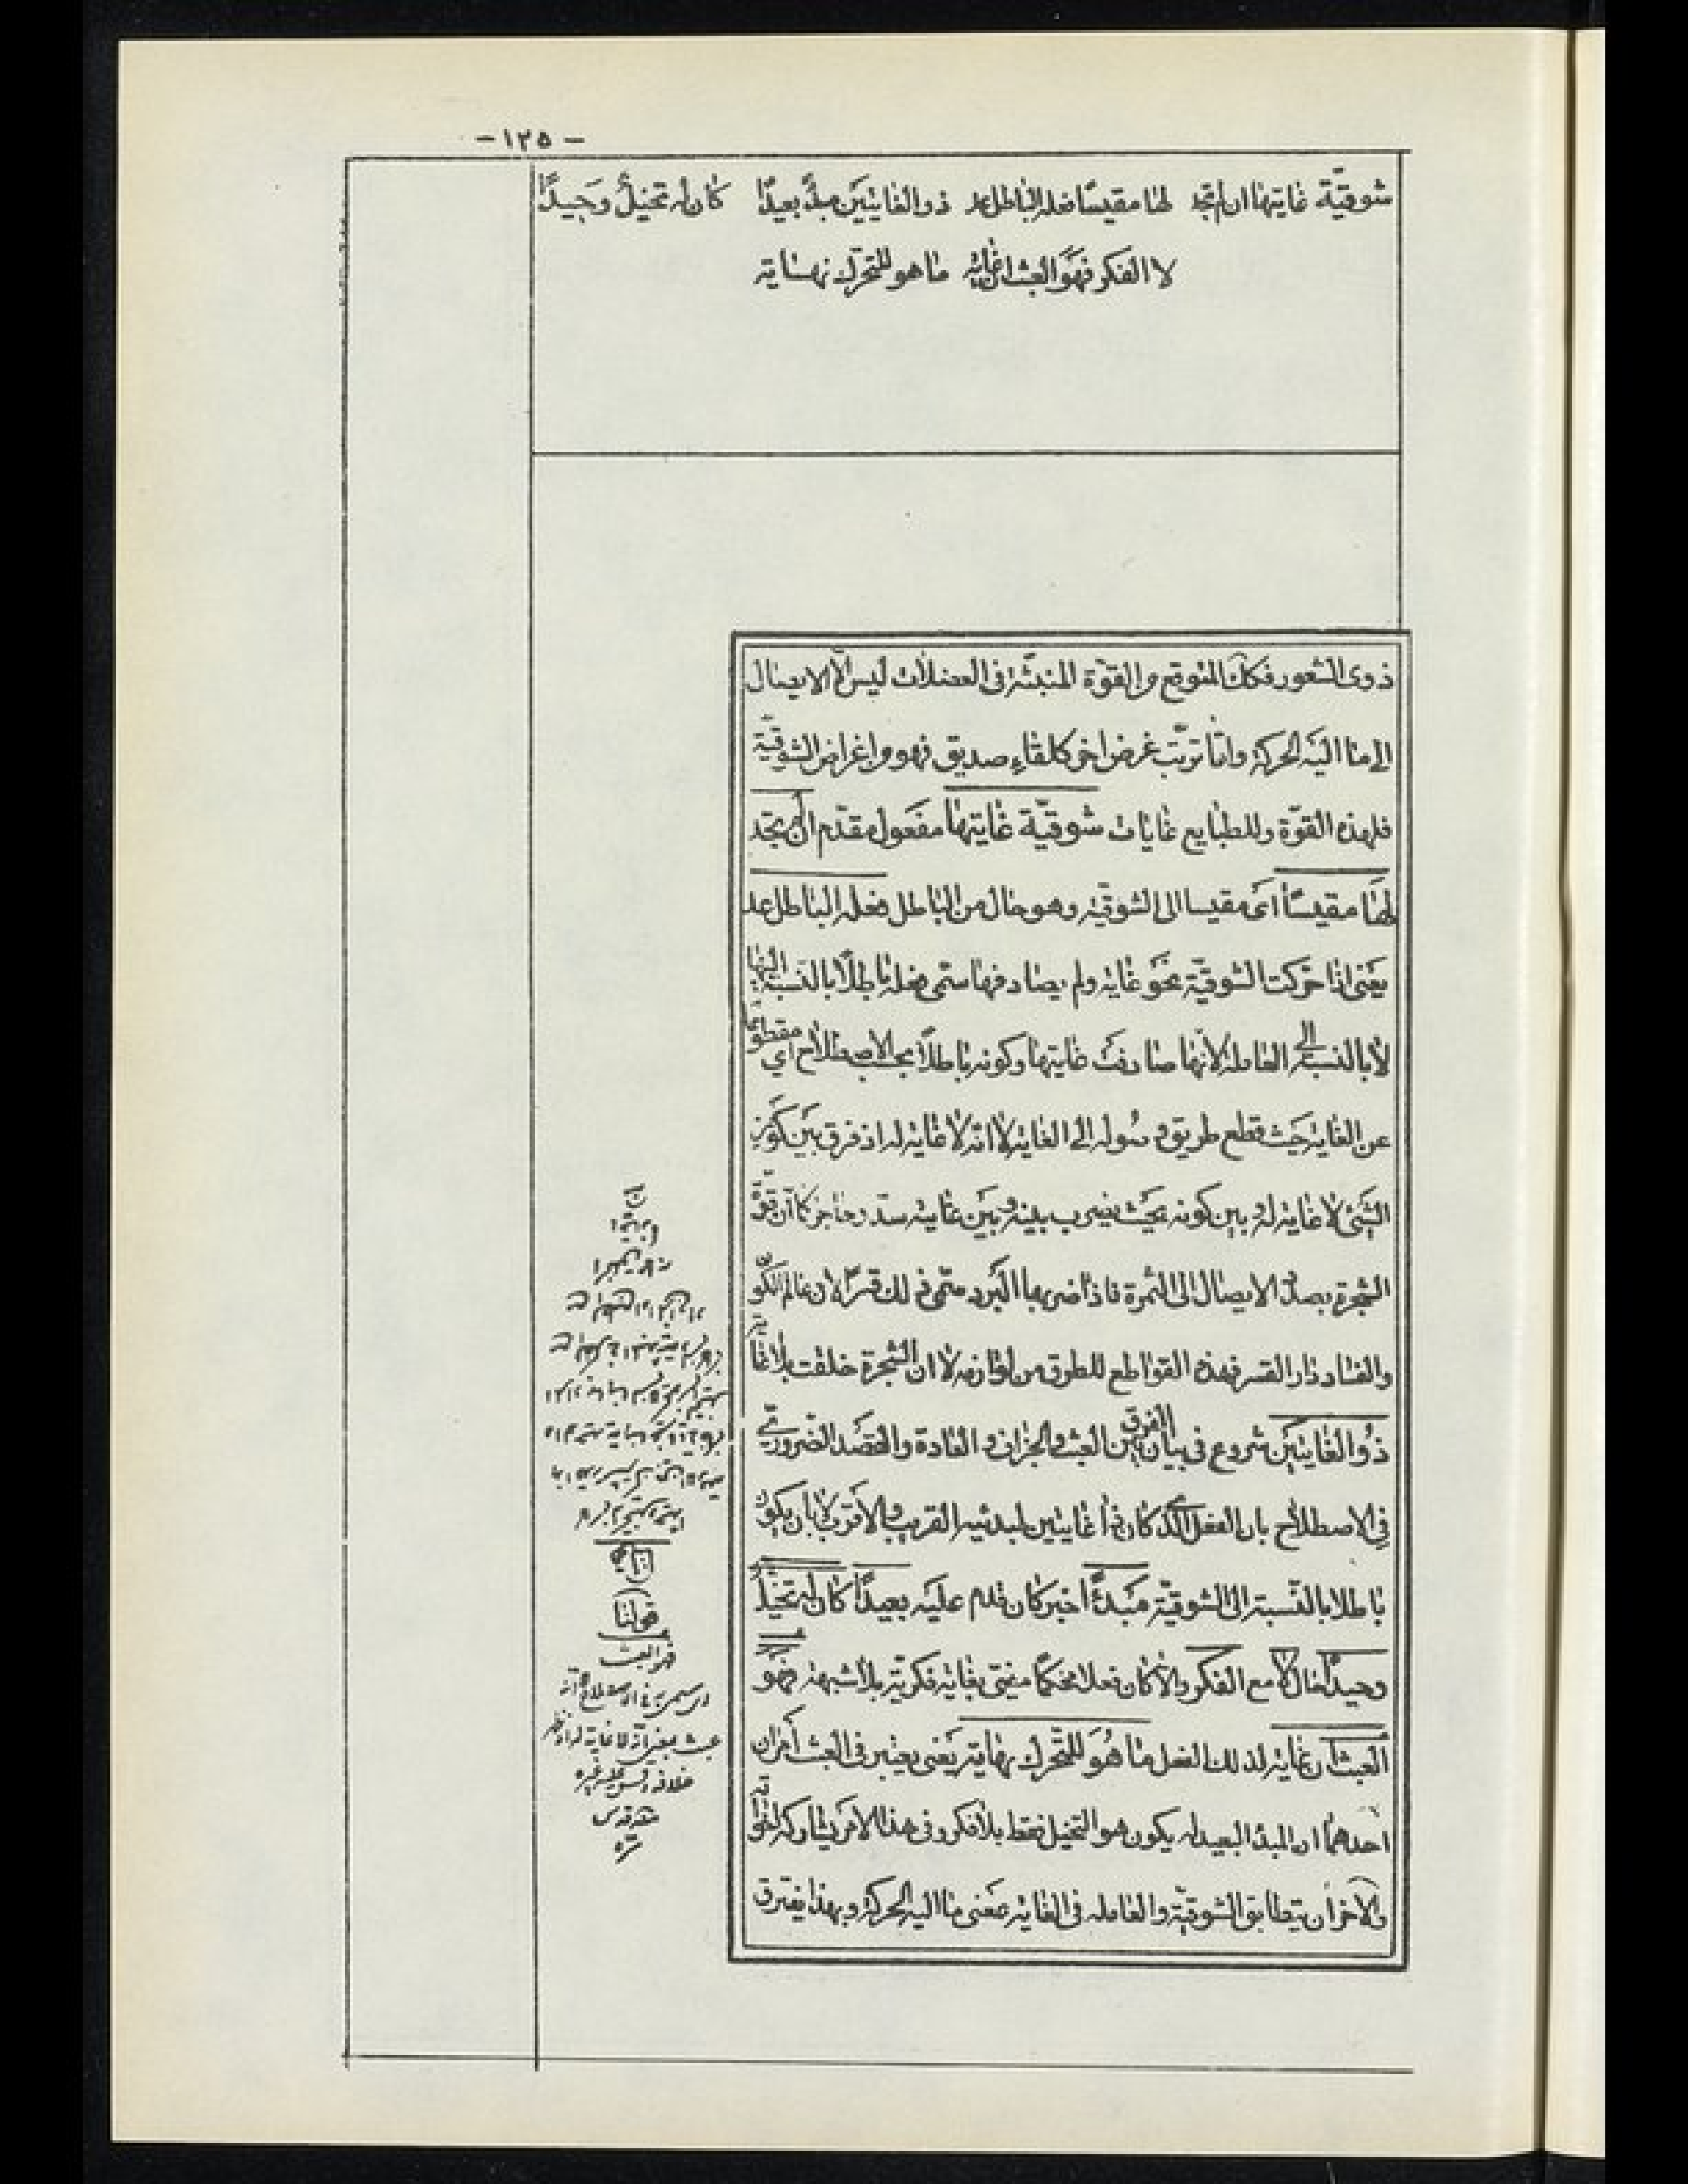 - ۱۲۵ -
شوقيّة غايتها ان لم تجد لها مقيسًا فعله الباطل عد ذو الغايتين مبدًأ بعيدًا كان له تخيّل وحيدًا
لا الفكر فهو العبث ان غايه ما هو للتحرّك نهايته
ذوى الشعور فكان المتوقع من القوّة المنبثّة فى العضلات ليس الّا الايصال
الى ما اليه الحركة وامّا ترتّب غرض اخر كلقاء صديق فهو من اغراض الشوقيّة
فلهذه القوّة وللطبايع غايات شوقيّة غايتها مفعول مقدّم ان لم تجد
لها مقيسًا اى مقيسا الى الشوقيّة وهو حال من الباطل فعله الباطل عد
يعنى اذا حرّكت الشوقيّة نحو غاية ولم يصادفها سمّى فعله باطلًا بالنسبة اليها
لا بالنسبة الى العاملة لانّها صادفت غايتها وكونه باطلًا بحسب الاصطلاح اى مقطوعًا
عن الغاية حيث قطع طريق وصوله الى الغاية لا انّه لا غاية له اذ فرق بين كون
الشىء لا غاية له وبين كونه بحيث ضرب بينه وبين غايته سدّ وحاجز كما انّ قوّة
الشجرة بصدد الايصال الى الثمرة فاذا ضربها البرد سمّى ذلك قسرًا لان عالم الكون
والفساد دار القسر فهذه القواطع للطرق من لوازمه لا ان الشجرة خلقت بلا غاية
ذو الغايتين شروع فى بيان الفرق بين العبث والجزاف والعادة والقصد الضرورىّ
فى الاصطلاح بان الفعل الّذى كان ذا غايتين لمبدئيه القريب والاقرب لا بان يكون
باطلا بالنّسبة الى الشوقيّة مبدًأ خبر كان قدم عليه بعيدًا كان له تخيّل
وحيدًا حال لا مع الفكر والّا كان فعلا محكمًا مغيّى بغاية فكريّة بلا شبهة فهو
العبث ان غاية لذلك الفعل ما هو للتحرّك نهاية يعنى يعتبر فى العبث امران
احدهما ان المبدا البعيد له يكون هو التخيل فقط بلا فكر وفى هذا الامر يشاركه البواقى
والاخر ان يتطابق الشوقيّة والعاملة فى الغاية بمعنى ما اليه الحركة وبهذا يفترق
قولنا
فهو العبث
عبث بمعنى انّه لا غاية له
منه قدس
سرّه